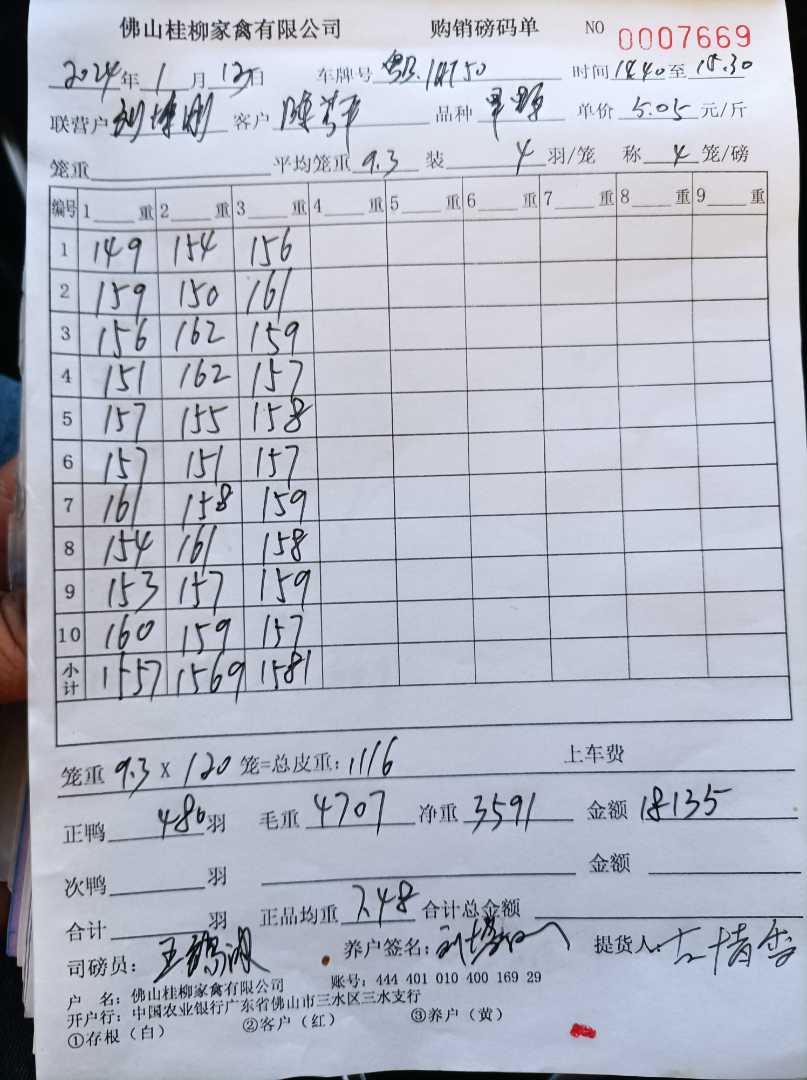 佛山桂柳家禽有限公司 购销磅码单 NO 0007669
2024年1月12日 车牌号 时间 14.40至15.30
联营户 客户 品种 单价 5.05 元/斤
笼重 平均笼重 9.3 装 4 羽/笼 称 4 笼/磅
编号 1 重 2 重 3 重 4 重 5 重 6 重 7 重 8 重 9 重
1 149 154 156
2 159 150 161
3 156 162 159
4 151 162 157
5 157 155 158
6 157 151 157
7 161 158 159
8 154 161 158
9 153 157 159
10 160 159 157
小计 1557 1569 1581
笼重 9.3 X 120 笼=总皮重: 1116 上车费
正鸭 480 羽 毛重 4707 净重 3591 金额 18135
次鸭 羽 金额
合计 羽 正品均重 7.48 合计总金额
司磅员: 养户签名: 提货人:
户 名: 佛山桂柳家禽有限公司 账号: 444 401 010 400 169 29
开户行: 中国农业银行广东省佛山市三水区三水支行
①存根(白) ②客户(红) ③养户(黄)